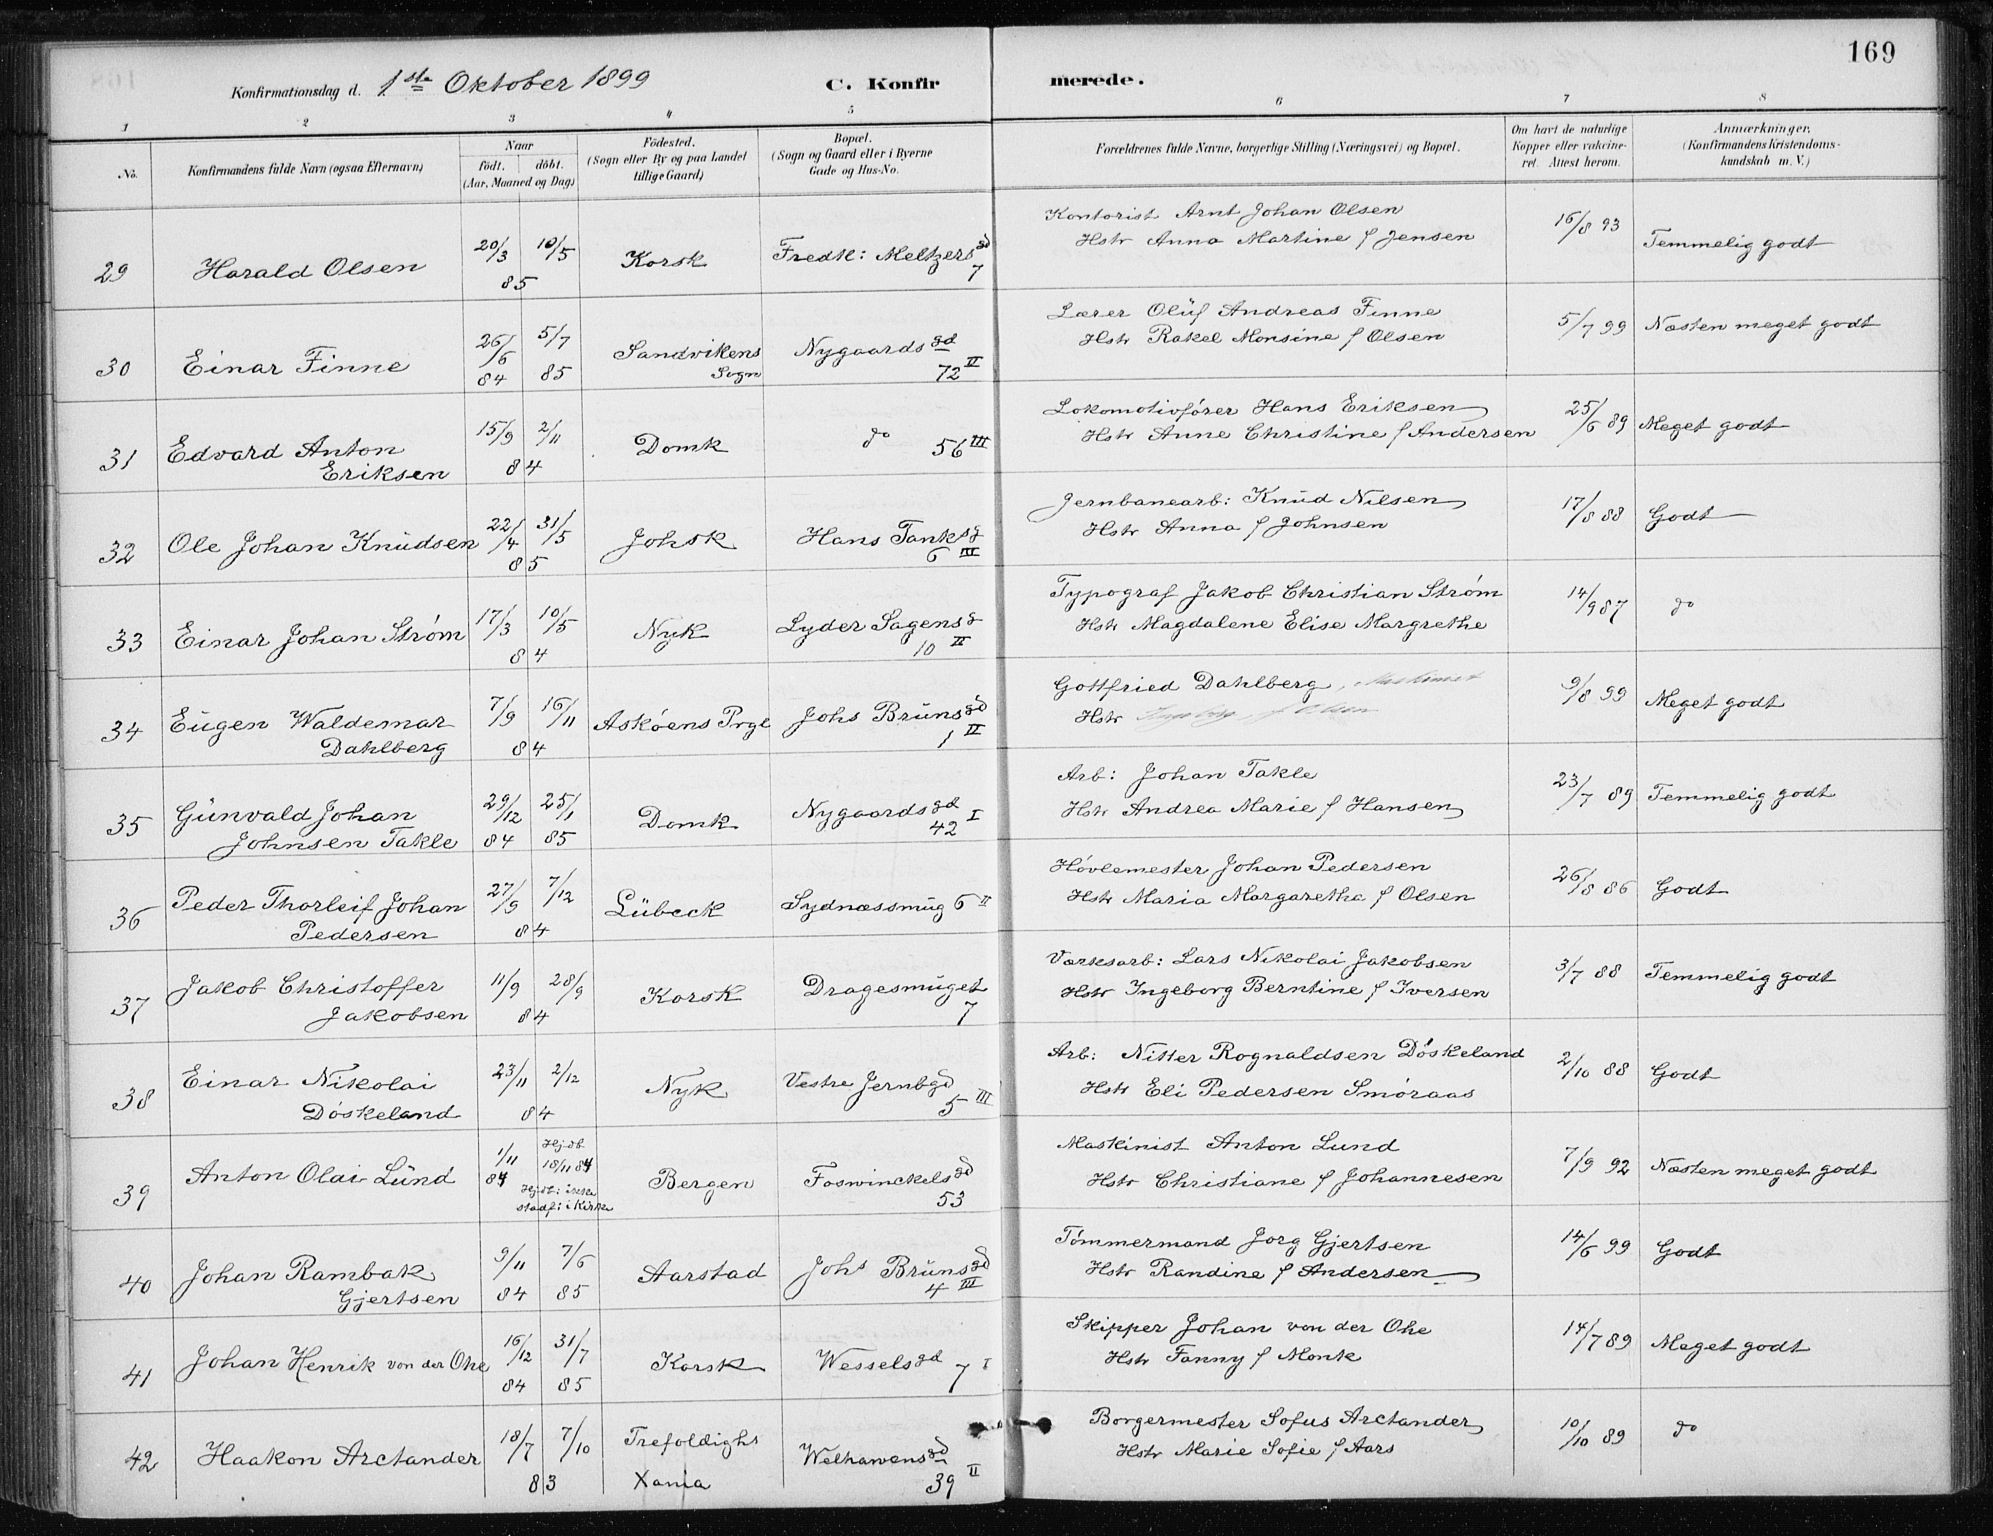 169
Konfirmationsdag d. 1ste Oktober 1899 C. Konfirmerede.
1 2 3 4 5 6 7 8
No. Konfirmandens fulde Navn (ogsaa Efternavn) Naar födt. döbt. (Aar, Maaned og Dag) Födested. (Sogn eller By og paa Landet tillige Gaard) Bopæl. (Sogn og Gaard eller i Byerne Gade og Hus-No. Forældrenes fulde Navne, borgerlige Stilling (Næringsvei) og Bopæl. Om havt de naturlige Kopper eller vakcineret. Attest herom. Anmærkninger. (Konfirmandens Kristendomskundskab m. V.)
29 Harald Olsen 20/3 10/5 85 Korsk Fredk: Meltzersgd 7 Kontorist Arnt Johan Olsen Hstr Anna Martine f Jensen 16/8 93 Temmelig godt
30 Einar Finne 26/6 84 5/7 85 Sandvikens Sogn Nygaardsgd 72 II Lærer Olüf Andreas Finne Hstr Rakel Monsine f Olsen 5/7 99 Næsten meget godt
31 Edvard Anton Eriksen 15/9 2/11 84 Domk do 56 III Lokomotivfører Hans Eriksen Hstr Anne Christine f Andersen 25/6 89 Meget godt
32 Ole Johan Knüdsen 22/4 31/5 85 Johsk Hans Tanksg 6 III Jernbanearb: Knüd Nilsen Hstr Anna f Johnsen 17/8 88 Godt
33 Einar Johan Strøm 17/3 10/5 84 Nyk Lyder Sagensg 10 II Typograf Jakob Christian Strøm Hstr Magdalene Elise Margrethe 14/9 87 do
34 Eügen Waldemar Dahlberg 7/9 16/11 84 Askøens Prgl Johs Brünsgd 1 II Gottfried Dahlberg, Maskinist Hstr Ingeborg f Olsen 9/8 99 Meget godt
35 Günvald Johan Johnsen Takle 29/12 84 25/1 85 Domk Nygaardsgd 42 I Arb: Johan Takle Hstr Andrea Marie f Hansen 23/7 89 Temmelig godt
36 Peder Thorleif Johan Pedersen 27/9 7/12 84 Lübeck Sydnæssmüg 6 II Høvlemester Johan Pedersen Hstr Maria Margaretha f Olsen 26/8 86 Godt
37 Jakob Christoffer Jakobsen 11/9 28/9 84 Korsk Dragesmüget 7 Værksarb: Lars Nikolai Jakobsen Hstr Ingeborg Berntine f Iversen 3/7 88 Temmelig godt
38 Einar Nikolai Døskeland 23/11 2/12 84 Nyk Vestre Jernbgd 5 III Arb: Nitter Rognaldsen Døskeland Hstr Eli Pedersen Smøraas 2/10 88 Godt
39 Anton Olai Lünd 1/11 84 Hjdb 18/11 84 Hjdb: ikke stadf: i Kirke Bergen Foswinckelsgd 53 Maskinist Anton Lund Hstr Christiane f Johannesen 7/9 92 Næsten meget godt
40 Johan Rambak Gjertsen 9/11 84 7/6 85 Aarstad Johs Brünsgd 4 III Tømmermand Jorg Gjertsen Hstr Randine f Andersen 14/6 99 Godt
41 Johan Henrik von der Ohe 16/12 84 31/7 85 Korsk Wesselsgd 7 I Skipper Johan von der Ohe Hstr Fanny f Monk 14/7 89 Meget godt
42 Haakon Arctander 18/7 7/10 83 Trefoldighs Xania Welhavensgd 39 II Borgermester Sofus Arctander Hstr Marie Sofie f Aars 10/10 89 do